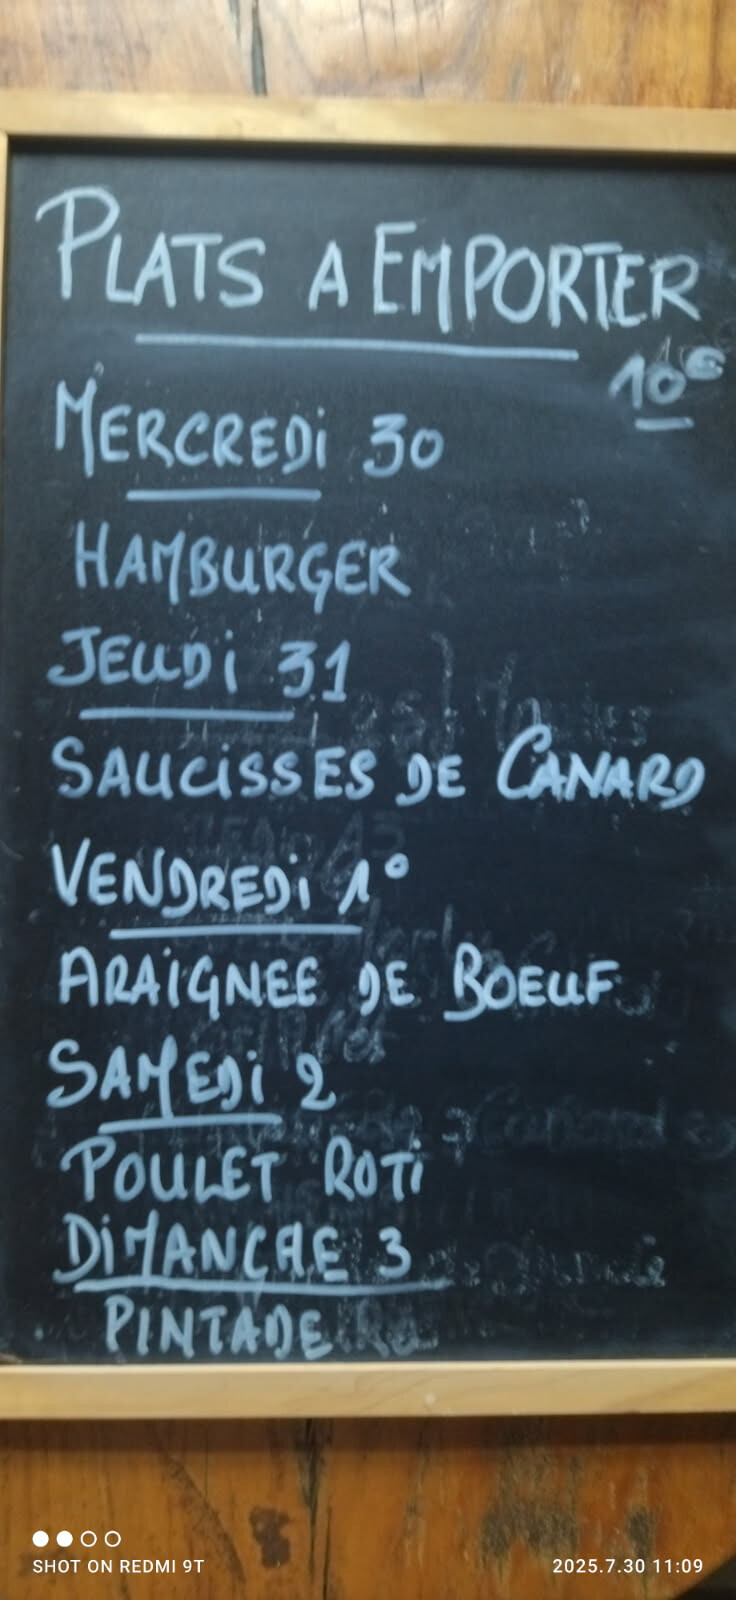 PLATS A EMPORTER
10€
MERCREDi 30
HAMBURGER
JEUDi 31
SAUCiSSES DE CANARD
VENDREDi 1°
ARAiGNEE DE BOEUF
SAMEDi 2
POULET ROTi
DiMANCHE 3
PINTADE
SHOT ON REDMI 9T
2025.7.30 11:09